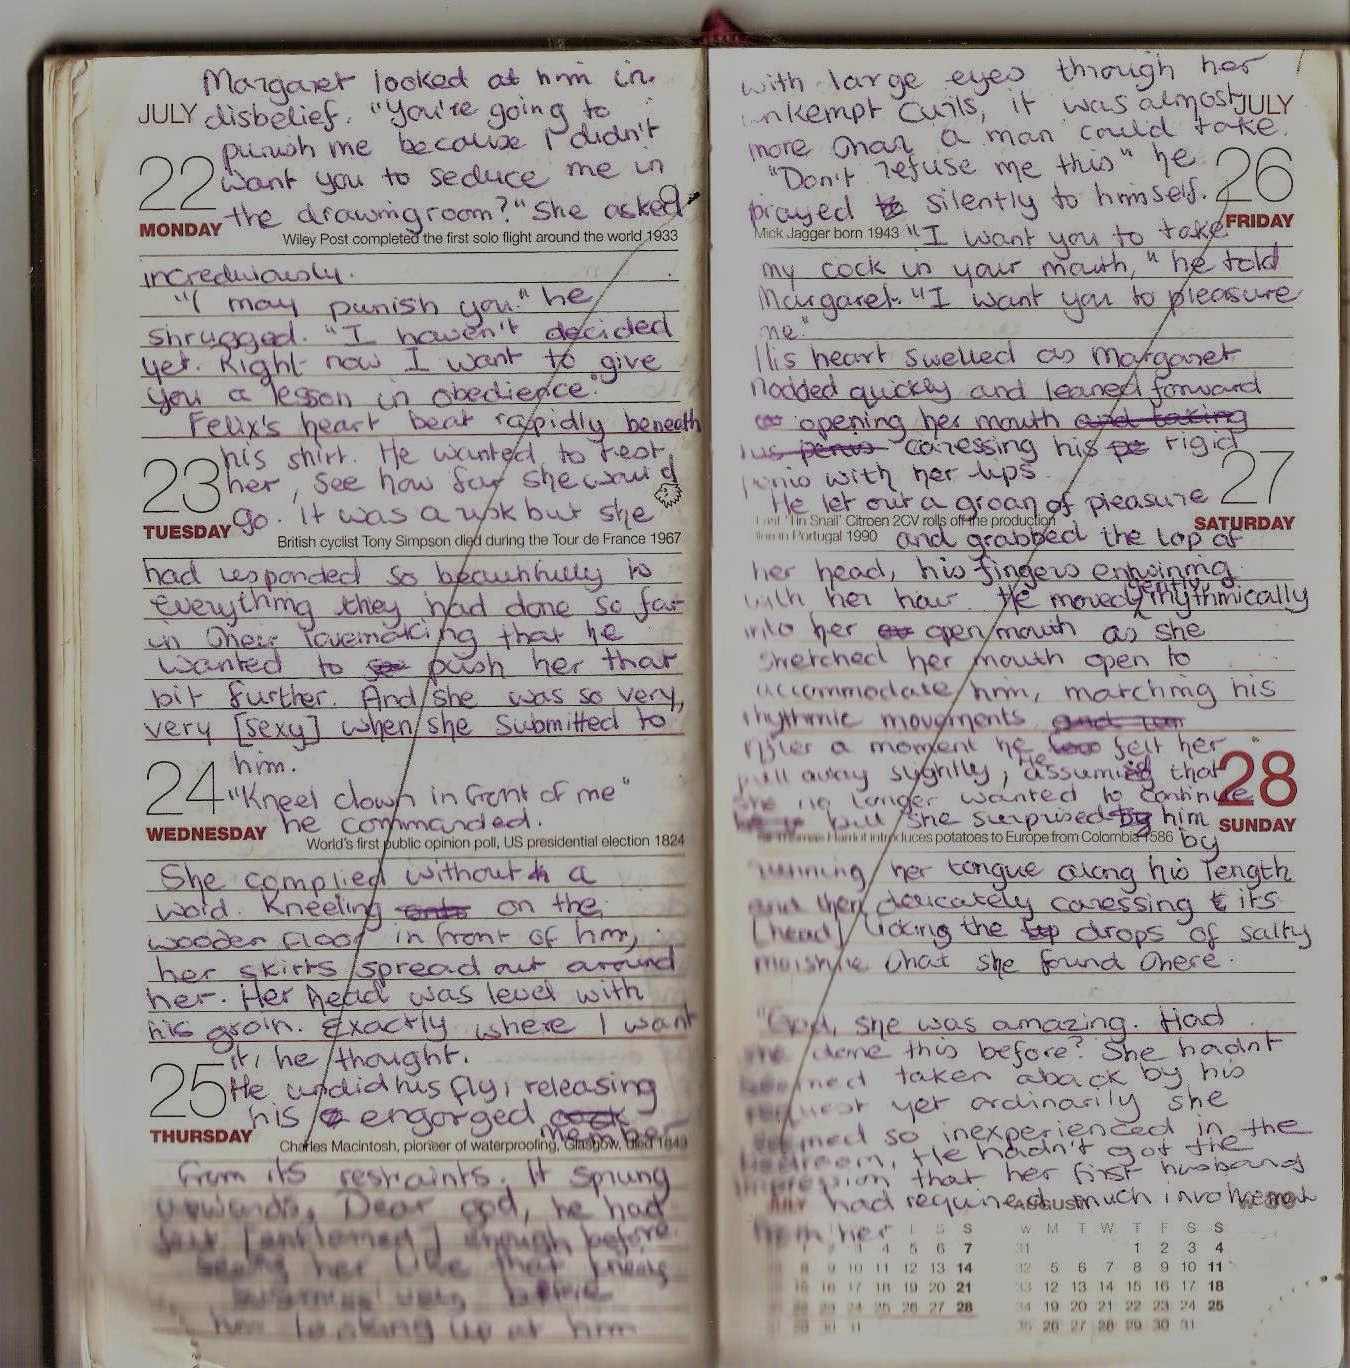 Margaret looked at him in
JULY disbelief. "You're going to
punish me because I didn't
22 want you to seduce me in
MONDAY the drawingroom?" She asked
Wiley Post completed the first solo flight around the world 1933
incredulously.
"I may punish you." he
shrugged. "I haven't decided
yet. Right now I want to give
you a lesson in obedience."
Felix's heart beat rapidly beneath
his shirt. He wanted to test
23 her, see how far she would
TUESDAY go. It was a risk but she
British cyclist Tony Simpson died during the Tour de France 1967
had responded so beautifully to
everything they had done so far
in their lovemaking that he
wanted to push her that
bit further. And she was so very,
very [sexy] when she submitted to
him.
24 "Kneel down in front of me"
WEDNESDAY he commanded.
World's first public opinion poll, US presidential election 1824
She complied without a
word. Kneeling on the
wooden floor in front of him,
her skirts spread out around
her. Her head was level with
his groin. Exactly where I want
it, he thought.
25 He undid his fly, releasing
his engorged cock member
THURSDAY
Charles Macintosh, pioneer of waterproofing, Glasgow, died 1843
from its restraints. It sprung
upwards. Dear god, he had
felt enough before
seeing her like that

him looking up at him
with large eyes through her
unkempt curls, it was almost JULY
more than a man could take.
"Don't refuse me this" he 26
prayed to silently to himself. FRIDAY
Mick Jagger born 1943 "I want you to take
my cock in your mouth," he told
Margaret. "I want you to pleasure
me."
His heart swelled as Margaret
nodded quickly and leaned forward
opening her mouth and taking
his penis caressing his pe rigid
penis with her lips. 27
He let out a groan of pleasure
Last 'Tin Snail' Citroen 2CV rolls off the production SATURDAY
line in Portugal 1990 and grabbed the top of
her head, his fingers entwining
with her hair. He moved gently, rhythmically
into her open mouth as she
stretched her mouth open to
accommodate him, matching his
rhythmic movements
After a moment he felt her
pull away slightly, He assumed that 28
she no longer wanted to continue
but she surprised by him SUNDAY
Sir Thomas Harriot introduces potatoes to Europe from Colombia 1586 by
running her tongue along his length
and then delicately caressing its
[head] licking the drops of salty
moisture that she found there.
"God, she was amazing. Had
she done this before? She hadn't
seemed taken aback by his
request yet ordinarily she
seemed so inexperienced in the
bedroom, He hadn't got the
impression that her first husband
had required much involvement
JULY AUGUST W 30
from her
L S S W M T W T F S S
4 5 6 7 31 1 2 3 4
8 9 10 11 12 13 14 32 5 6 7 8 9 10 11
15 16 17 18 19 20 21 33 12 13 14 15 16 17 18
22 23 24 25 26 27 28 34 19 20 21 22 23 24 25
29 30 31 35 26 27 28 29 30 31